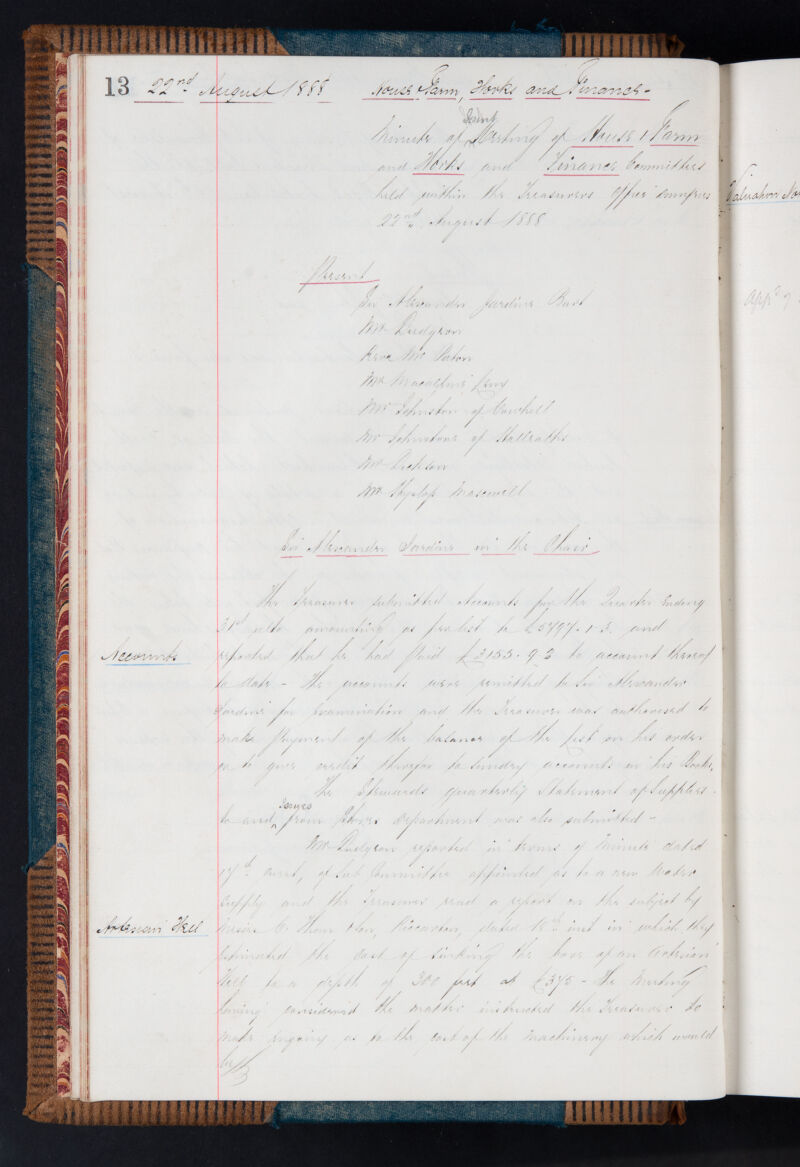 13 22nd August 1888 House & Farm, Works and Finance -
Minute of Joint Meeting of House & Farm
and Works and Finance Committees
held within the Treasurers Office Dumfries
22nd August 1888
Present
Sir Alexander Jardine Bart
Mr Dudgeon
Revd Mr Paton
Mr Macalpine Leny
Mr Johnston of Cowhill
Mr Johnstone of Halleaths
Mr Dickson
Mr Hyslop Maxwell
Sir Alexander Jardine in the Chair
The Treasurer submitted Accounts for the Quarter Ending
31st ulto amounting as per list to £5797. 1. 5. and
Accounts reported that he had paid £3155. 9. 2 to account thereof
to date - The accounts were remitted to Sir Alexander
Jardine for examination and the Treasurer was authorised to
make payment of the balance of the list on his order
or to give credit therefor to Sundry accounts in his Books.
The Stewards quarterly Statement of Supplies
to and Issues from Stores department was also submitted -
Mr Dudgeon reported in terms of Minute dated
17th of Sub Committee appointed as to a new Water
Supply and the Treasurer read a report on the subject by
Artesian Well Messrs dated inst in which they
estimated the cost of sinking the bore of an Artesian
Well to a depth of 300 feet at £375 - The Meeting
having considered the matter instructed the Treasurer to
make inquiry as to the cost of the machinery which would
be
Valuation
App'd